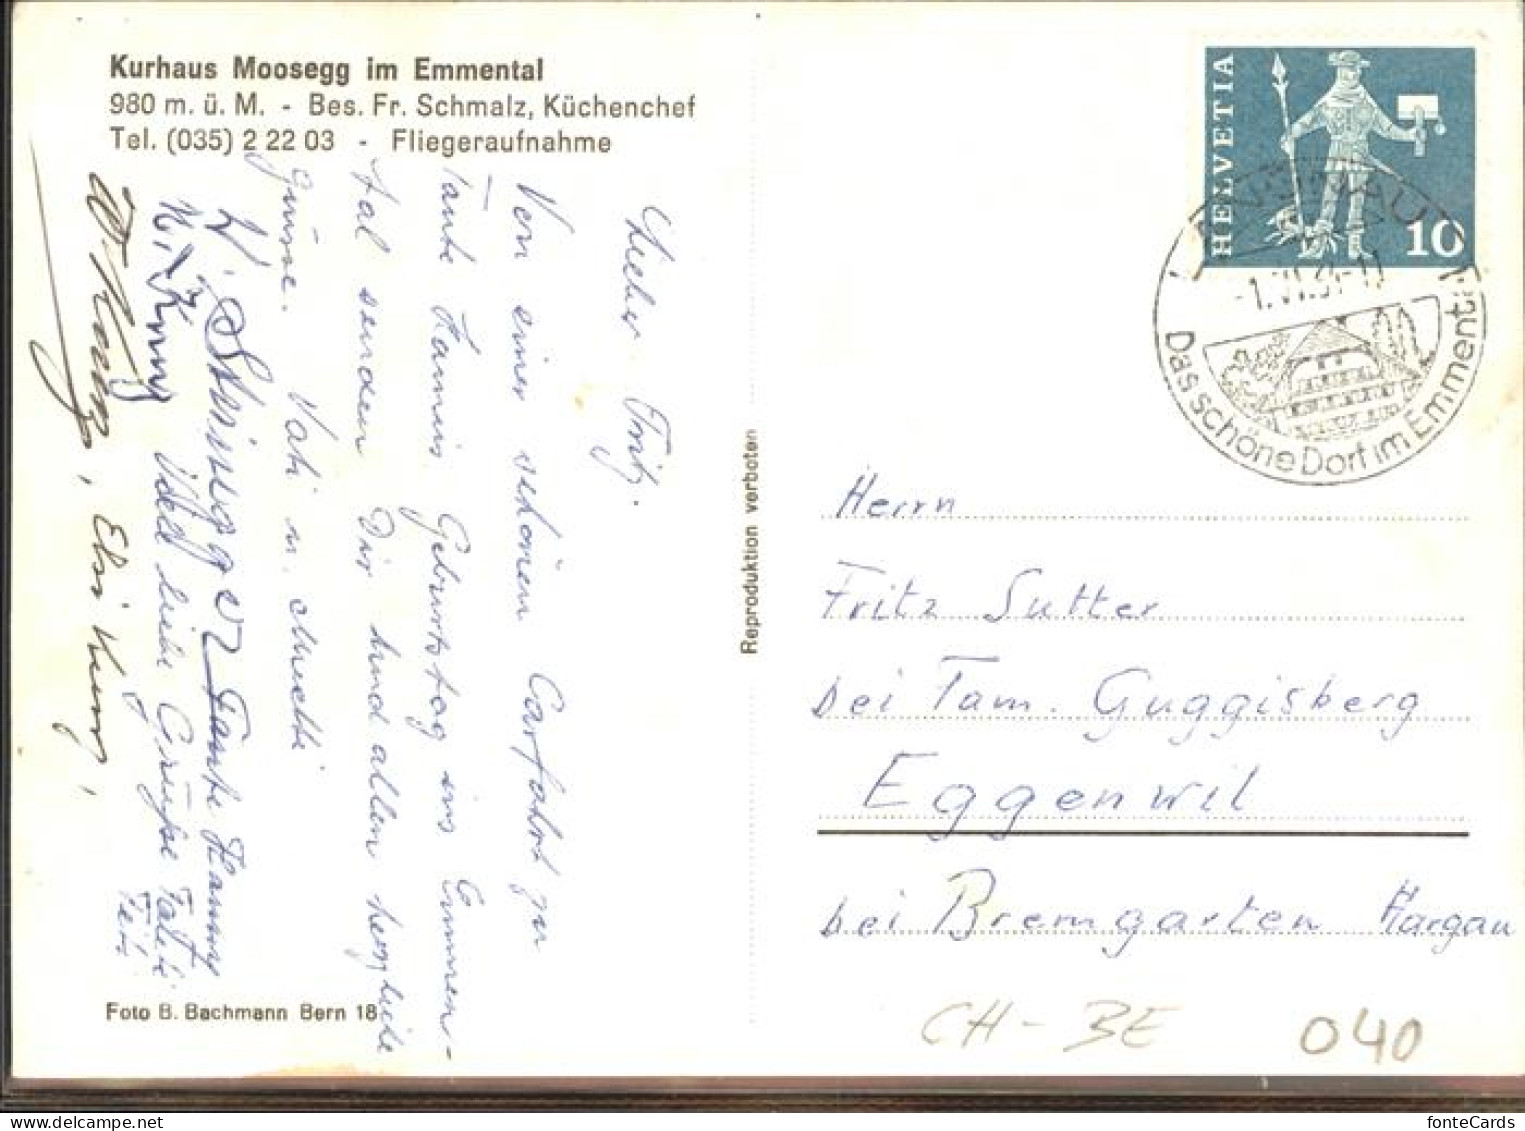 Kurhaus Moosegg im Emmental
980 m. ü. M. - Bes. Fr. Schmalz, Küchenchef
Tel. (035) 2 22 03 - Fliegeraufnahme
Lieber Fritz.
Von einer schönen Carfahrt zu
Tante Hannis Geburtstag ins Emmen-
tal senden Dir und allen herzliche
Grüsse. Vati u. Muetti
Tante Hanny
liebe Grüsse
Elsi König,
Foto B. Bachmann Bern 18
Reproduktion verboten
HELVETIA
10
LANGNAU
Das schöne Dorf im Emmental
Herrn
Fritz Sutter
bei Fam. Guggisberg
Eggenwil
bei Bremgarten Aargau
CH-BE 040
fonteCards